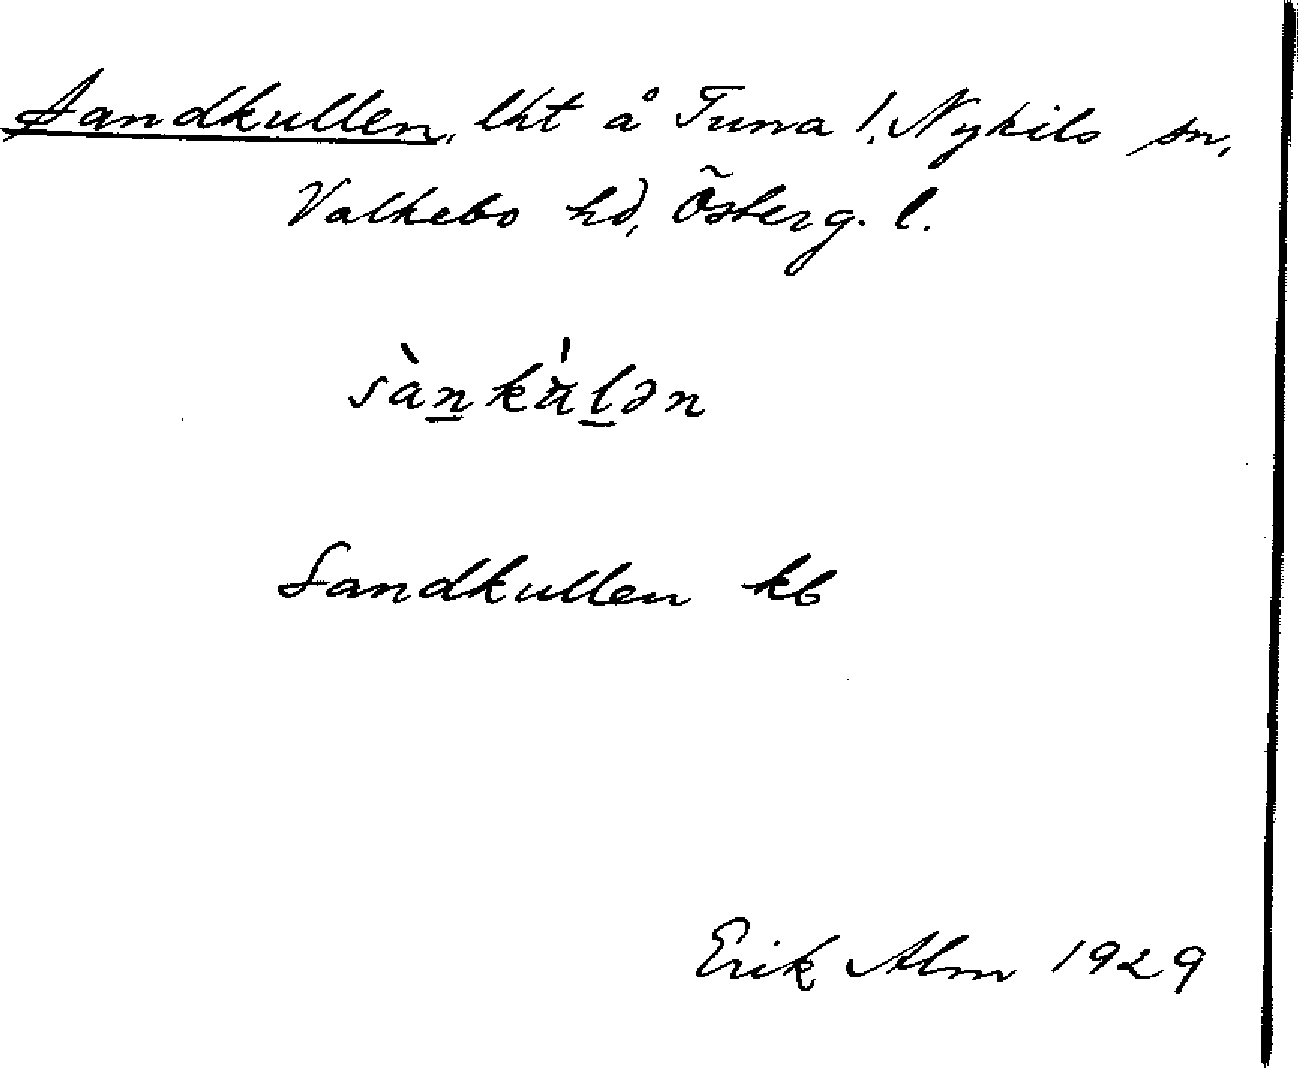 Sandkullen, lht å Tuna 1. Nykils sn,
Valkebo hd, Österg. l.
sàn̲kàl̲ən
Sandkullen kb
Erik Alm 1929